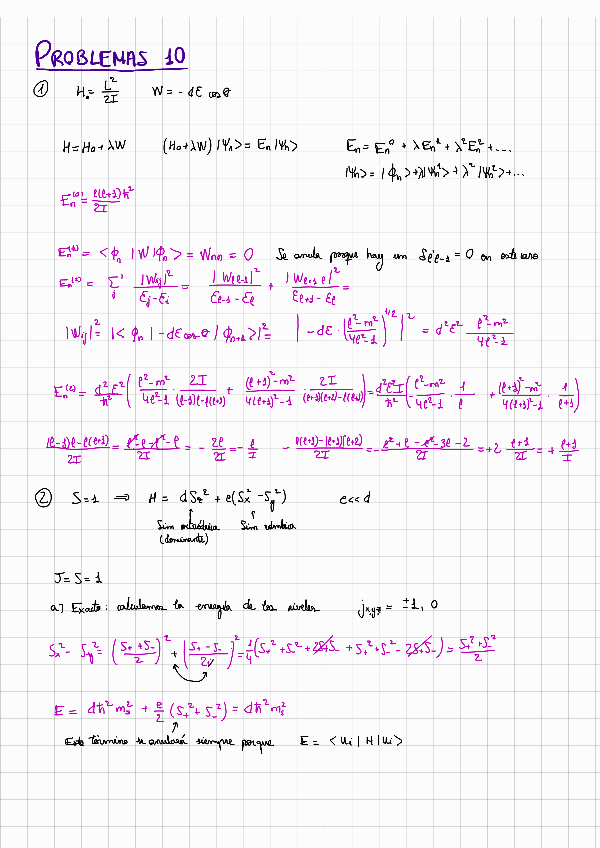 PROBLEMAS 10
① H₀ = L²/2I   W = - dE cos θ
H = H₀ + λW   (H₀ + λW) |Ψn> = En |Ψn>   En = En⁰ + λEn¹ + λ²En² + ...
|Ψn> = |ϕn> + λ|Ψn¹> + λ²|Ψn²> + ...
En⁽⁰⁾ = ℓ(ℓ+1)ħ²/2I
En⁽¹⁾ = <ϕn |W|ϕn> = Wnn = 0   Se anula porque hay un δℓ'ℓ-1 = 0 en este caso
En⁽²⁾ = Σ'j |Wij|²/(Ej - Ei) = |Wℓℓ-1|²/(Eℓ-1 - Eℓ) + |Wℓ+1 ℓ|²/(Eℓ+1 - Eℓ) =
|Wij|² = |<ϕn | -dE cos θ |ϕn+1>|² = | -dE · ((ℓ²-m²)/(4ℓ²-1))^1/2 |² = d²E² (ℓ²-m²)/(4ℓ²-1)
En⁽²⁾ = d²E²/ħ² ( (ℓ²-m²)/(4ℓ²-1) · 2I/((ℓ-1)ℓ-ℓ(ℓ+1)) + ((ℓ+1)²-m²)/(4(ℓ+1)²-1) · 2I/((ℓ+1)(ℓ+2)-ℓ(ℓ+1)) ) = d²E²I/ħ² ( -(ℓ²-m²)/(4ℓ²-1) · 1/ℓ + ((ℓ+1)²-m²)/(4(ℓ+1)²-1) · 1/(ℓ+1) )
((ℓ-1)ℓ-ℓ(ℓ+1))/2I = (ℓ²-ℓ-ℓ²-ℓ)/2I = - 2ℓ/2I = - ℓ/I   - (ℓ(ℓ+1)-(ℓ+1)(ℓ+2))/2I = - (ℓ²+ℓ-ℓ²-3ℓ-2)/2I = +2 (ℓ+1)/2I = + (ℓ+1)/I
② S=1 ⟹ H = dSz² + e(Sx² - Sy²)   e<<d
Sim   Sim rómbica
(dominante)
J = S = 1
a) Exacto: calculamos la energía de los niveles   jx,y,z = ±1, 0
Sx² - Sy² = ((S+ + S-)/2)² + ((S+ - S-)/2)² = 1/4 (S+² + S-² + 2S+S- + S+² + S-² - 2S+S-) = (S+² + S-²)/2
E = dħ²ms² + e/2 (S+² + S-²) = dħ²ms²
Este término se anulará siempre porque   E = <ui | H | ui>